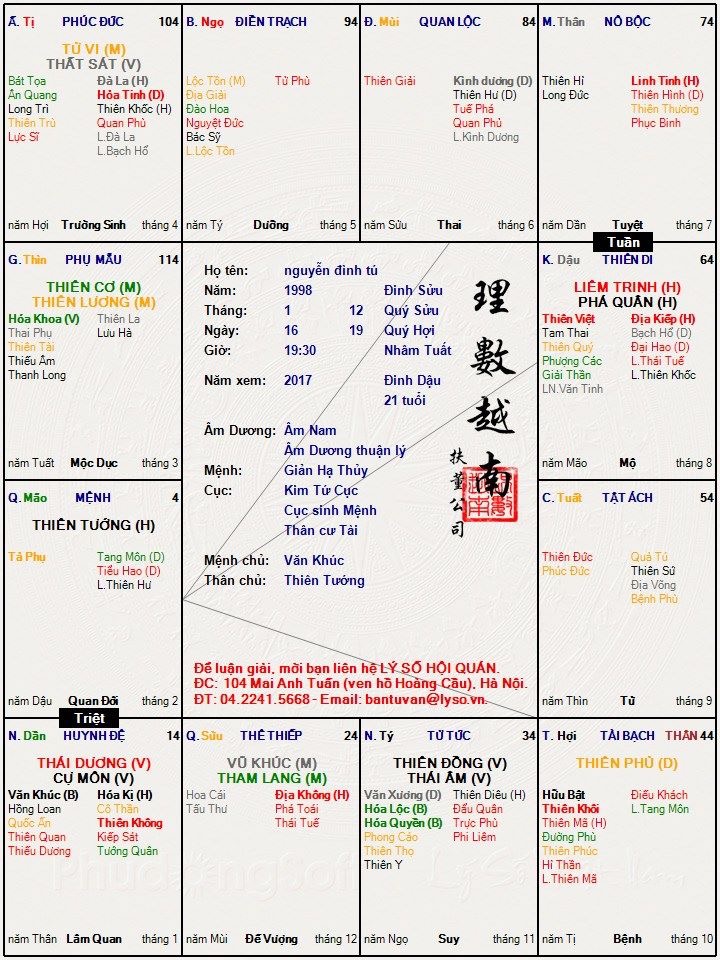 Ã. Tị PHÚC ĐỨC 104
TỬ VI (M)
THẤT SÁT (V)
Bát Tọa
Ân Quang
Long Trì
Thiên Trù
Lực Sĩ
Đà La (H)
Hỏa Tinh (D)
Thiên Khốc (H)
Quan Phù
L.Đà La
L.Bạch Hổ
năm Hợi Trường Sinh tháng 4
B. Ngọ ĐIỀN TRẠCH 94
Lộc Tồn (M)
Địa Giải
Đào Hoa
Nguyệt Đức
Bác Sỹ
L.Lộc Tồn
Tử Phù
năm Tý Dưỡng tháng 5
Đ. Mùi QUAN LỘC 84
Thiên Giải
Kình dương (D)
Thiên Hư (D)
Tuế Phá
Quan Phủ
L.Kình Dương
năm Sửu Thai tháng 6
M. Thân NÔ BỘC 74
Thiên Hỉ
Long Đức
Linh Tinh (H)
Thiên Hình (D)
Thiên Thương
Phục Binh
năm Dần Tuyệt tháng 7
Tuần
G. Thìn PHỤ MẪU 114
THIÊN CƠ (M)
THIÊN LƯƠNG (M)
Hóa Khoa (V)
Thai Phụ
Thiên Tài
Thiếu Âm
Thanh Long
Thiên La
Lưu Hà
năm Tuất Mộc Dục tháng 3
Họ tên: nguyễn đình tú
Năm: 1998 Đinh Sửu
Tháng: 1 12 Quý Sửu
Ngày: 16 19 Quý Hợi
Giờ: 19:30 Nhâm Tuất
Năm xem: 2017 Đinh Dậu
21 tuổi
Âm Dương: Âm Nam
Âm Dương thuận lý
Mệnh: Giản Hạ Thủy
Cục: Kim Tứ Cục
Cục sinh Mệnh
Thân cư Tài
Mệnh chủ: Văn Khúc
Thân chủ: Thiên Tướng
理數越南
扶董公司
Để luận giải, mời bạn liên hệ LÝ SỐ HỘI QUÁN.
ĐC: 104 Mai Anh Tuấn (ven hồ Hoàng Cầu), Hà Nội.
ĐT: 04.2241.5668 - Email: bantuvan@lyso.vn.
K. Dậu THIÊN DI 64
LIÊM TRINH (H)
PHÁ QUÂN (H)
Thiên Việt
Tam Thai
Thiên Quý
Phượng Các
Giải Thần
LN.Văn Tinh
Địa Kiếp (H)
Bạch Hổ (D)
Đại Hao (D)
L.Thái Tuế
L.Thiên Khốc
năm Mão Mộ tháng 8
Q. Mão MỆNH 4
THIÊN TƯỚNG (H)
Tả Phụ
Tang Môn (D)
Tiểu Hao (D)
L.Thiên Hư
năm Dậu Quan Đới tháng 2
C. Tuất TẬT ÁCH 54
Thiên Đức
Phúc Đức
Quả Tú
Thiên Sứ
Địa Võng
Bệnh Phù
năm Thìn Tử tháng 9
Triệt
N. Dần HUYNH ĐỆ 14
THÁI DƯƠNG (V)
CỰ MÔN (V)
Văn Khúc (B)
Hồng Loan
Quốc Ấn
Thiên Quan
Thiếu Dương
Hóa Kị (H)
Cô Thần
Thiên Không
Kiếp Sát
Tướng Quân
năm Thân Lâm Quan tháng 1
Q. Sửu THÊ THIẾP 24
VŨ KHÚC (M)
THAM LANG (M)
Hoa Cái
Tấu Thư
Địa Không (H)
Phá Toái
Thái Tuế
năm Mùi Đế Vượng tháng 12
N. Tý TỬ TỨC 34
THIÊN ĐỒNG (V)
THÁI ÂM (V)
Văn Xương (D)
Hóa Lộc (B)
Hóa Quyền (B)
Phong Cáo
Thiên Thọ
Thiên Y
Thiên Diêu (H)
Đẩu Quân
Trực Phù
Phi Liêm
năm Ngọ Suy tháng 11
T. Hợi TÀI BẠCH THÂN 44
THIÊN PHỦ (D)
Hữu Bật
Thiên Khôi
Thiên Mã (H)
Đường Phù
Thiên Phúc
Hỉ Thần
L.Thiên Mã
Điếu Khách
L.Tang Môn
năm Tị Bệnh tháng 10